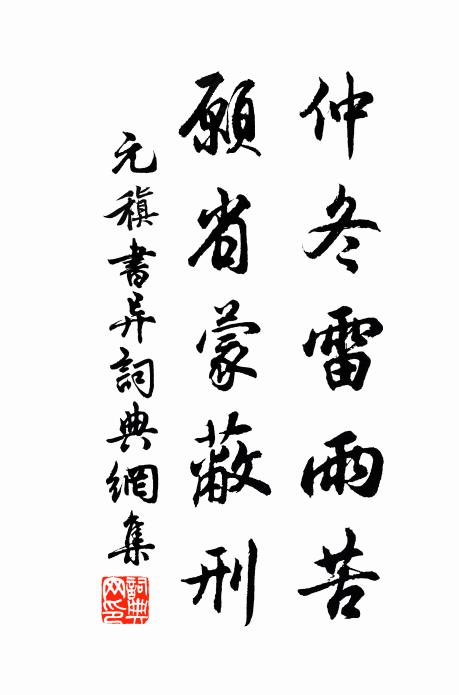 仲冬雷雨苦
願省蒙蔽刑
元稹書异詞典網集
詞典網印